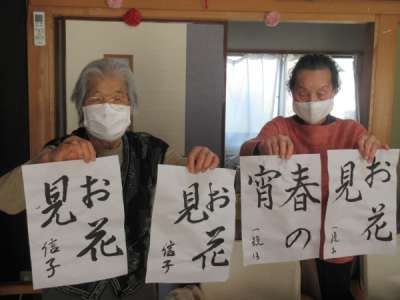 お花
見
信子
お花
見
信子
春の
宵
お花
見